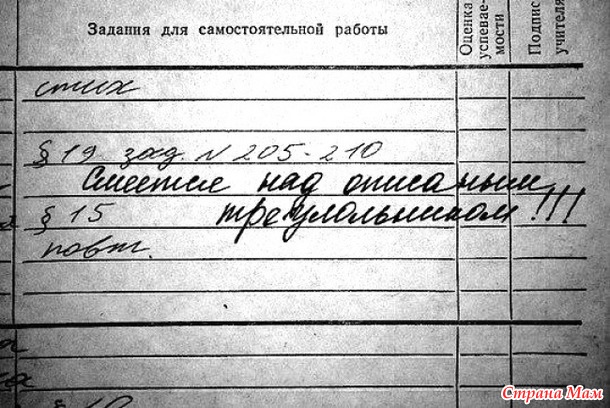 Задания для самостоятельной работы
Оценка
успевае-
мости
Подпис
учителя
стих
§ 19 зад. N 205-210
Смеется над описаным
§ 15 треугольником!!!
повт.
Страна Мам